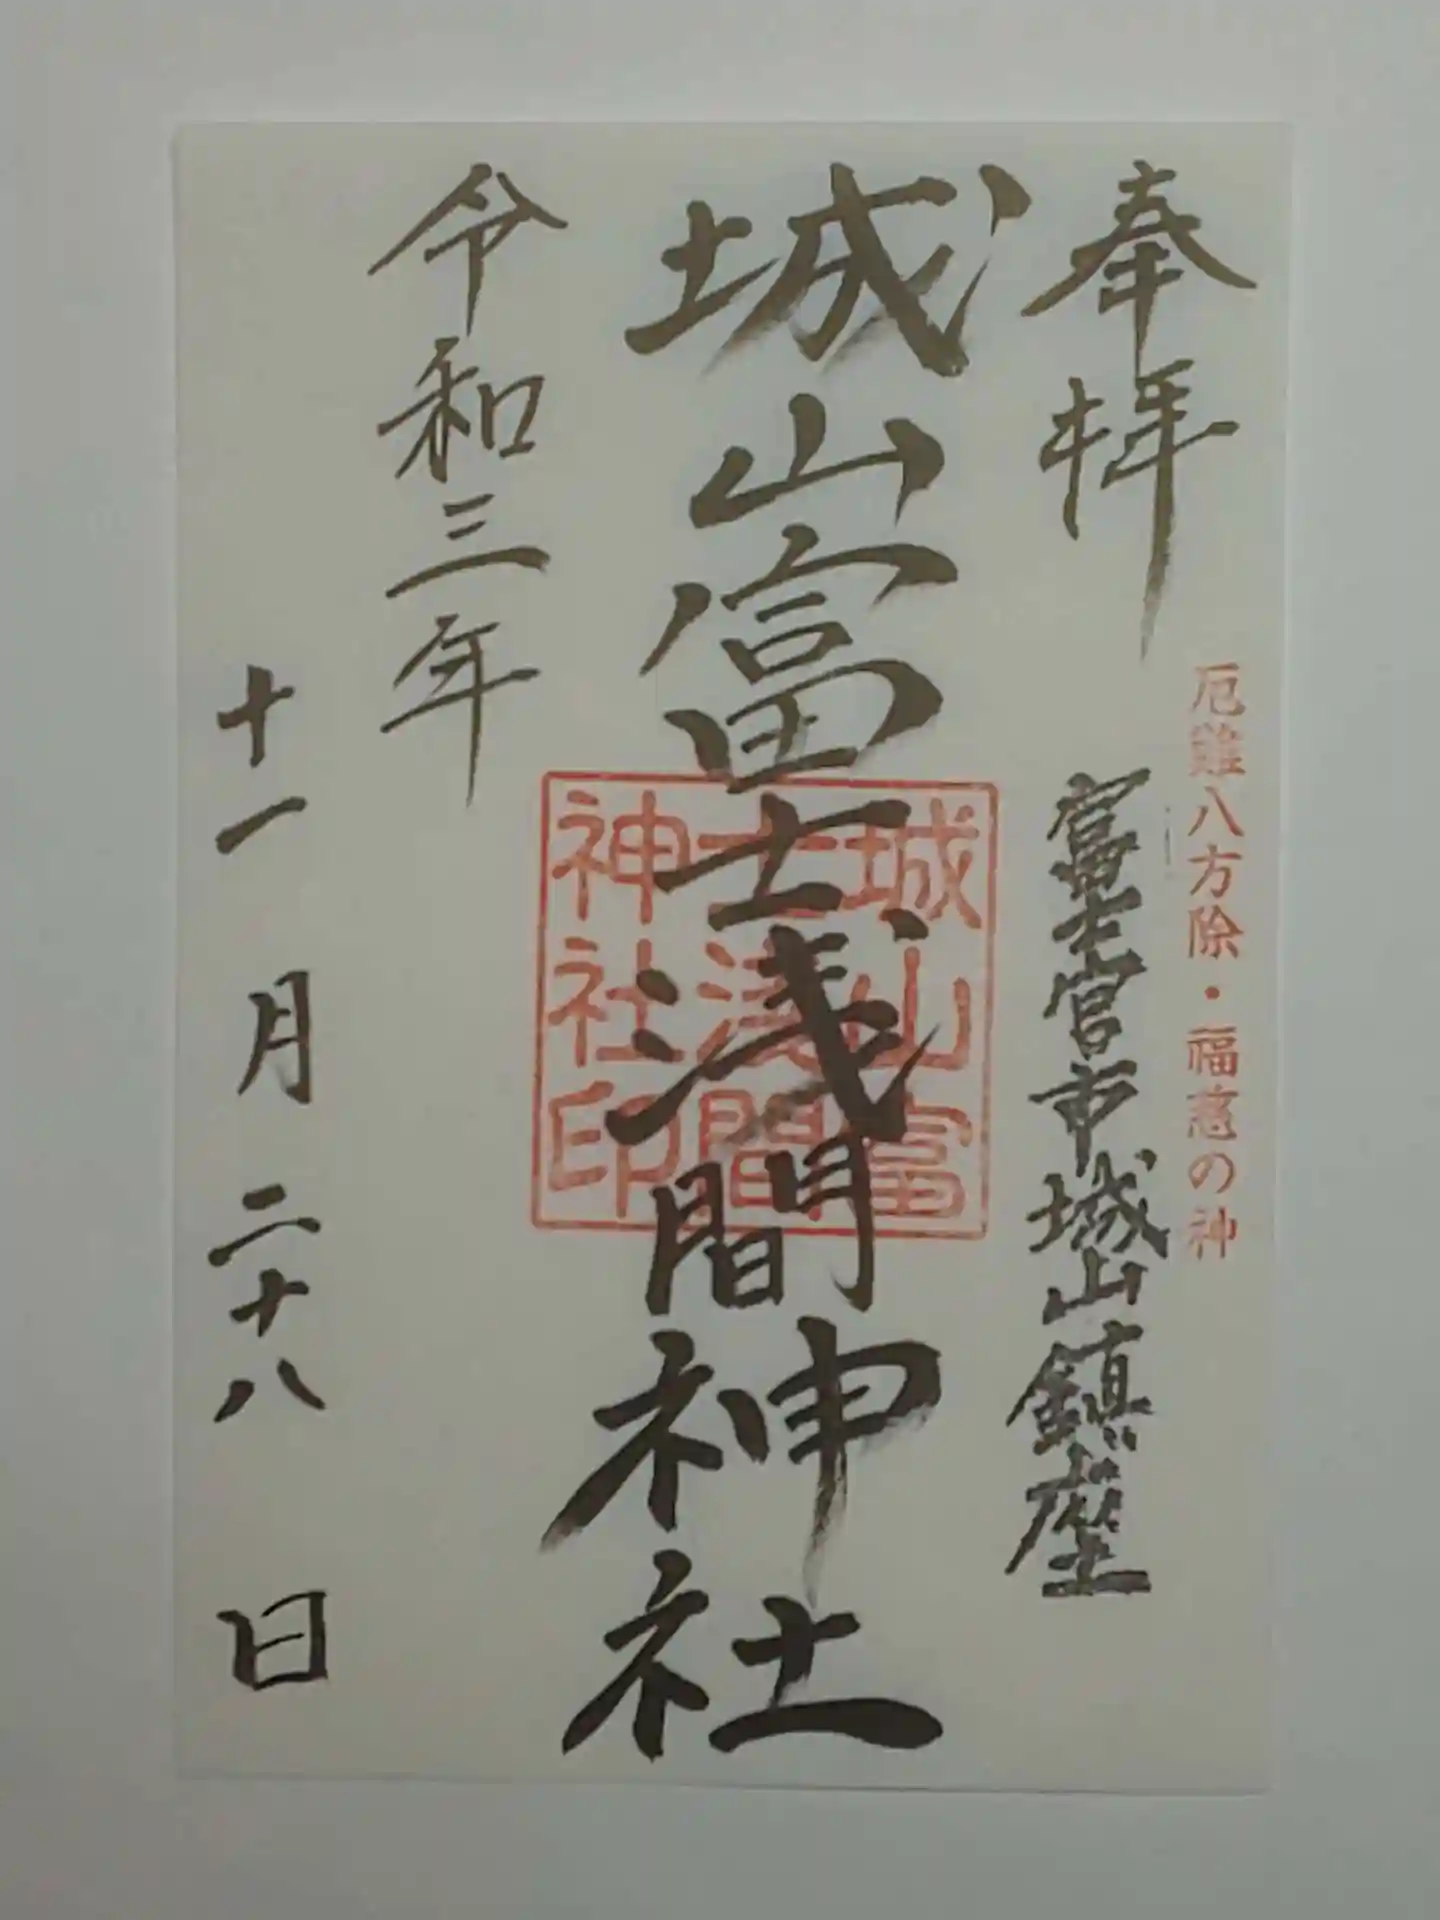 奉拝
厄難八方除・福慈の神
富士宮市城山鎮座
城山富士浅間神社
城山富
士浅間
神社印
令和三年
十一月二十八日